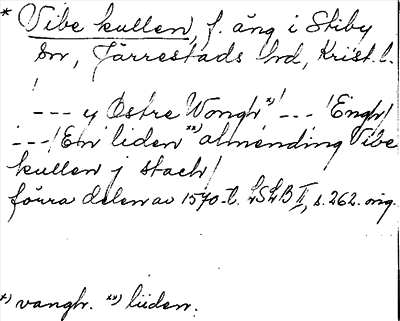 * Vibe kullen, f. äng i Stiby
sn, Järrestads hd, Krist. l.
!
--- y Östre Wongh *) ! --- ! Engh !
--- ! En liden **) almending Vibe
kullen j stach !
förra delen av 1570-t. LSLB II, s. 262. orig.
*) vangh. **) liiden.